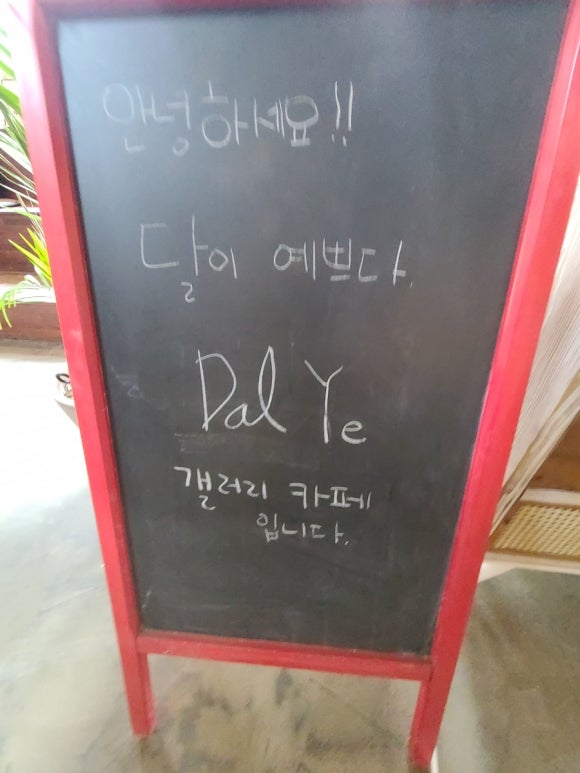 안녕하세요!!
달이 예쁘다.
Dal Ye
갤러리 카페
입니다.